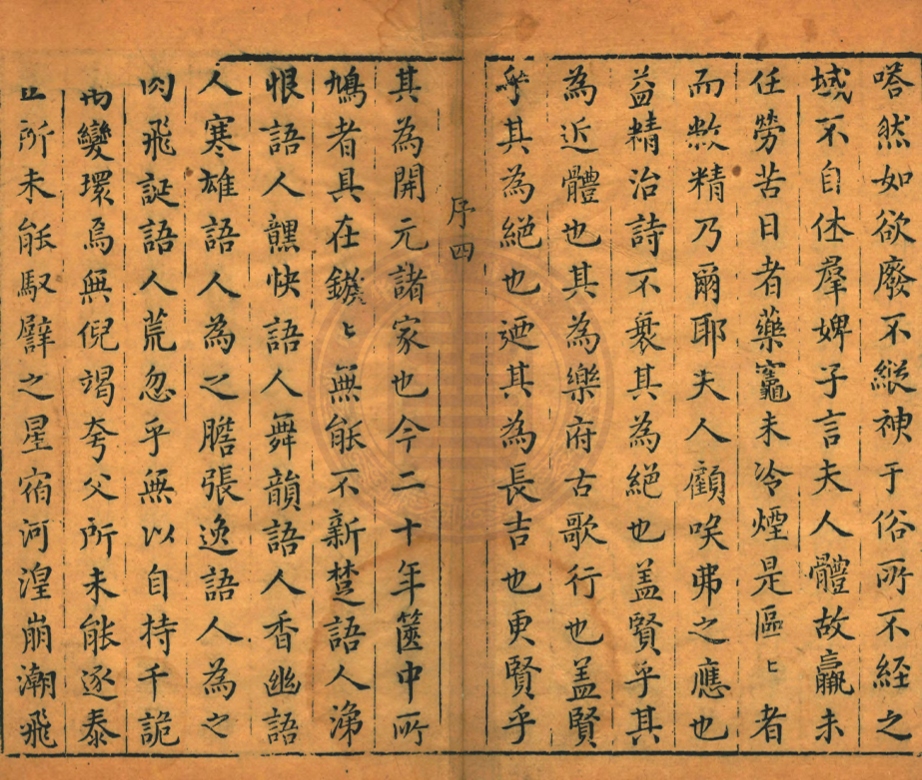 嗒然如欲廢不縱神于俗所不經之
域不自休羣婢子言夫人體故羸未
任勞苦日者藥竈未冷煙是區〻者
而敝精乃爾耶夫人顧唉弗之應也
益精治詩不衰其為絕也盖賢乎其
為近體也其為樂府古歌行也盖賢
乎其為絕也廼其為長吉也更賢乎
序四
其為開元諸家也今二十年篋中所
鳩者具在鑱〻無能不新楚語人涕
恨語人醒快語人舞韻語人香幽語
人寒雄語人為之膽張逸語人為之
肉飛誕語人荒忽乎無以自持千詭
而變環焉無倪竭夸父所未能逐泰
豆所未能馭譬之星宿河湟崩潮飛